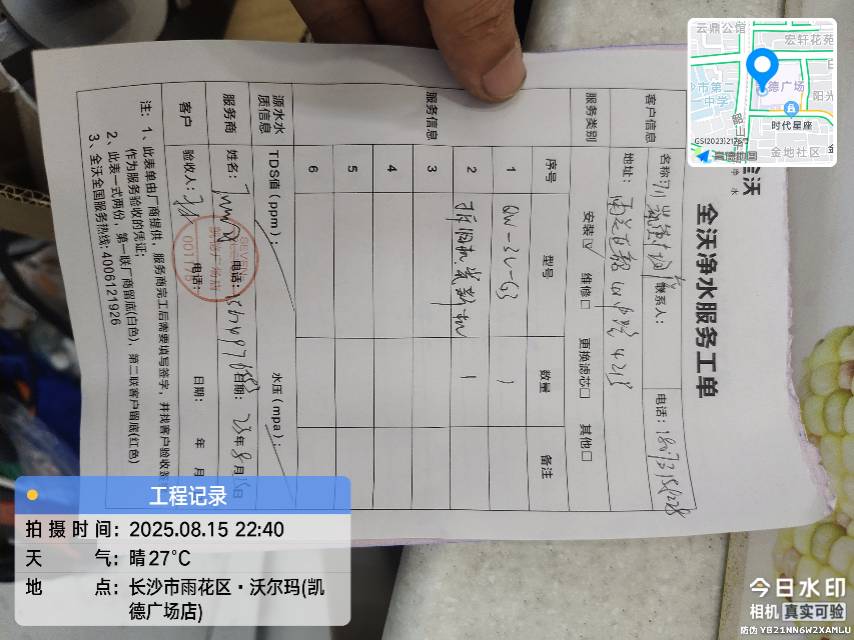 全沃
净水
全沃净水服务工单
客户信息
名称：711凯德广场店
联系人：
电话：18073151228
地址：雨花区韶山中路421号
服务类别
安装☑
维修□
更换滤芯□
其他□
服务信息
序号
型号
数量
备注
1
QW-3L-G3
1
2
拆旧机，装新机
1
3
4
5
6
源水水质信息
TDS值（ppm）：
水压（mpa）：
服务商
姓名：
电话：
日期：
25年8月15日
客户
验收人：
电话：
日期：
年
月
SEVEN
001175
注：1、此表单由厂商提供，服务商完工后需要填写签字，并找客户验收签
作为服务验收的凭证；
2、此表一式两份，第一联厂商留底(白色)，第二联客户留底(红色)
3、全沃全国服务热线：4006121926
云鼎公馆
宏轩花苑
沙市第二
中学
德广场
阳光
时代星座
金地社区
GS(2023)2176号
工程记录
拍摄时间：2025.08.15 22:40
天气：晴27℃
地点：长沙市雨花区·沃尔玛(凯
德广场店)
今日水印
相机 真实可验
防伪 YB21NN6W2XAMLU